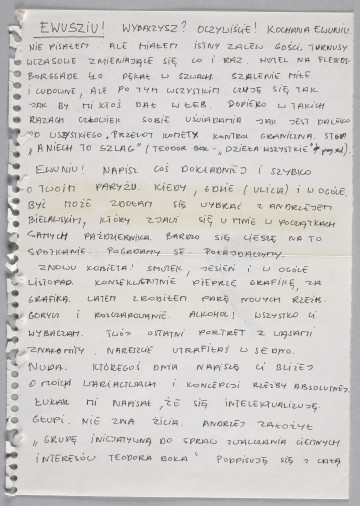 EWUSZIU! WYBACZYSZ? OCZYWIŚCIE! KOCHANA EWUNIU.
NIE PISAŁEM. ALE MIAŁEM ISTNY ZALEW GOŚCI. TURNUSY
WCZASOWE ZMIENIAJĄCE SIĘ CO I RAZ. HOTEL NA FLENDS-
BORGGADE 40 PĘKAŁ W SZWACH. SZALENIE MIŁE
I CUDOWNE, ALE PO TYM WSZYSTKIM CZUJĘ SIĘ TAK
JAK BY MI KTOŚ DAŁ W ŁEB. DOPIERO W TAKICH
RAZACH CZŁOWIEK SOBIE UŚWIADAMIA JAK JEST DALEKO
OD WSZYSTKIEGO. PRZELOT KOMETY KONTROL GRANICZNA. STOP.
„A NIECH TO SZLAG" (TEODOR BOK - „DZIEŁA WSZYSTKIE"
EWUNIU! NAPISZ COŚ DOKŁADNIEJ I SZYBKO
O TWOIM PARYŻU. KIEDY, GDZIE (ULICA) I W OGÓLE.
BYĆ MOŻE ZDOŁAM SIĘ WYBRAĆ Z ANDRZEJEM
BIELAWSKIM, KTÓRY ZJAWI SIĘ U MNIE W POCZĄTKACH
SAMYCH PAŹDZIERNIKA. BARDZO SIĘ CIESZĘ NA TO
SPOTKANIE. POGADAMY SE
ZNOWU KOBIETA! SMUTEK, JESIEŃ I W OGÓLE
LISTOPAD. KONSEKWENTNIE PIEPRZĘ GRAFIKĘ, ZA
GRAFIKĄ. LATEM ZROBIŁEM PARĘ NOWYCH RZEŹB.
GORYCZ I ROZCZAROWANIE. ALKOHOL! WSZYSTKO CI
WYBACZAM. TWÓJ OSTATNI PORTRET Z WĄSAMI
ZNAKOMITY. NARESZCIE UTRAFIŁAŚ W SEDNO.
NUDA. KTÓREGOŚ DNIA NAPISZĘ CI BLIŻEJ
O MOICH WARIACJACH I KONCEPCJI RZEŹBY ABSOLUTNEJ.
ŁUKASZ MI NAPISAŁ, ŻE SIĘ INTELEKTUALIZUJĘ.
GŁUPI. NIE ZNA ŻYCIA. ANDRZEJ ZAŁOŻYŁ
„GRUPĘ INICJATYWNĄ DO SPRAW ZWALCZANIA CIEMNYCH
INTERESÓW TEODORA BOKA" PODPISUJĘ SIĘ Z CAŁĄ